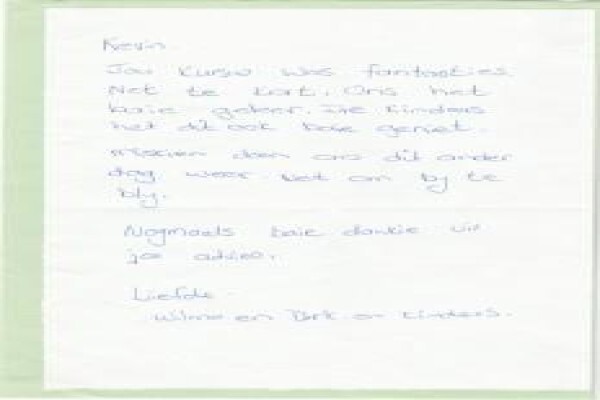 Kevin
Jou kursus was fantasties
Net te kort. Ons het
baie geleer. Die kinders
het dit ook baie geniet.
Miskien doen ons dit ander
dag weer net om by te
bly.
Nogmaals baie dankie vir
jou advies.
Liefde
Wilma en Dirk en kinders.